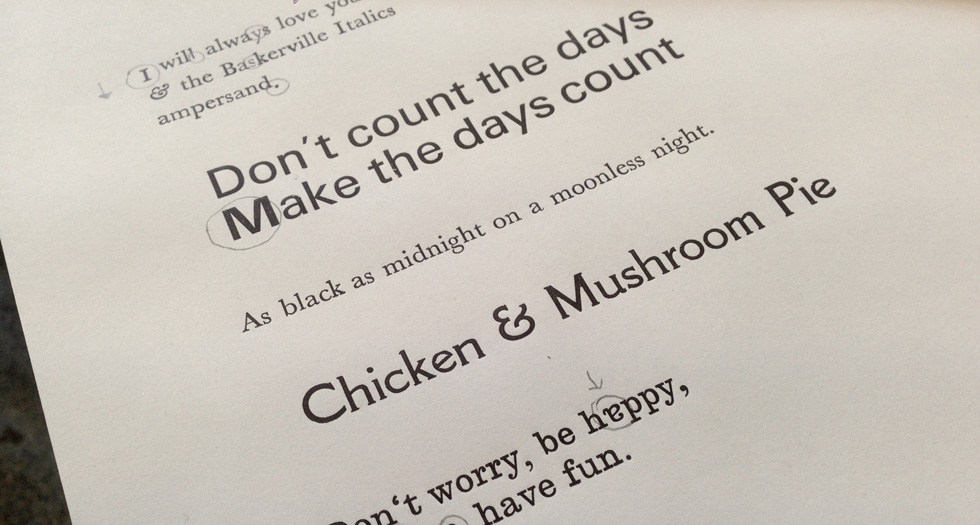 I will always love you
& the Baskerville Italics
ampersand.
Don't count the days
Make the days count
As black as midnight on a moonless night.
Chicken & Mushroom Pie
Don‘t worry, be hɐppy,
have fun.